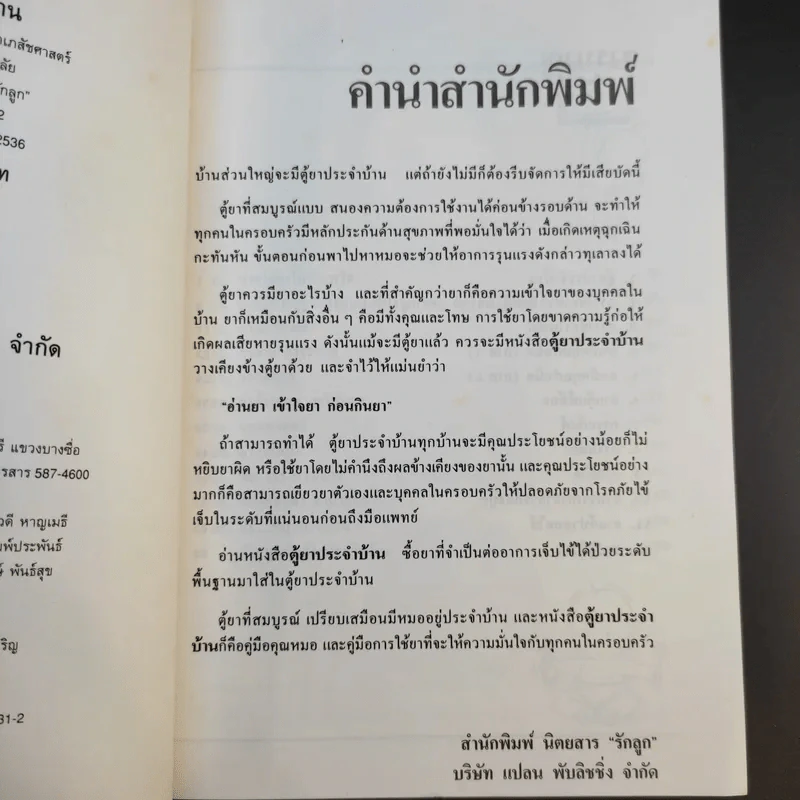 าน
เภสัชศาสตร์
ลัย
รักลูก”
2
2536
ท
จำกัด
รี แขวงบางซื่อ
รสาร 587-4600
วดี หาญเมธี
มพ์ประพันธ์
ษ์ พันธ์สุข
ริญ
31-2
คำนำสำนักพิมพ์
บ้านส่วนใหญ่จะมีตู้ยาประจำบ้าน แต่ถ้ายังไม่มีก็ต้องรีบจัดการให้มีเสียบัดนี้
ตู้ยาที่สมบูรณ์แบบ สนองความต้องการใช้งานได้ค่อนข้างรอบด้าน จะทำให้
ทุกคนในครอบครัวมีหลักประกันด้านสุขภาพที่พอมั่นใจได้ว่า เมื่อเกิดเหตุฉุกเฉิน
กะทันหัน ขั้นตอนก่อนพาไปหาหมอจะช่วยให้อาการรุนแรงดังกล่าวทุเลาลงได้
ตู้ยาควรมียาอะไรบ้าง และที่สำคัญกว่ายาก็คือความเข้าใจยาของบุคคลใน
บ้าน ยาก็เหมือนกับสิ่งอื่น ๆ คือมีทั้งคุณและโทษ การใช้ยาโดยขาดความรู้ก่อให้
เกิดผลเสียหายรุนแรง ดังนั้นแม้จะมีตู้ยาแล้ว ควรจะมีหนังสือตู้ยาประจำบ้าน
วางเคียงข้างตู้ยาด้วย และจำไว้ให้แม่นยำว่า
“อ่านยา เข้าใจยา ก่อนกินยา”
ถ้าสามารถทำได้ ตู้ยาประจำบ้านทุกบ้านจะมีคุณประโยชน์อย่างน้อยก็ไม่
หยิบยาผิด หรือใช้ยาโดยไม่คำนึงถึงผลข้างเคียงของยานั้น และคุณประโยชน์อย่าง
มากก็คือสามารถเยียวยาตัวเองและบุคคลในครอบครัวให้ปลอดภัยจากโรคภัยไข้
เจ็บในระดับที่แน่นอนก่อนถึงมือแพทย์
อ่านหนังสือตู้ยาประจำบ้าน ซื้อยาที่จำเป็นต่ออาการเจ็บไข้ได้ป่วยระดับ
พื้นฐานมาใส่ในตู้ยาประจำบ้าน
ตู้ยาที่สมบูรณ์ เปรียบเสมือนมีหมออยู่ประจำบ้าน และหนังสือตู้ยาประจำ
บ้านก็คือคู่มือคุณหมอ และคู่มือการใช้ยาที่จะให้ความมั่นใจกับทุกคนในครอบครัว
สำนักพิมพ์ นิตยสาร “รักลูก”
บริษัท แปลน พับลิชชิ่ง จำกัด